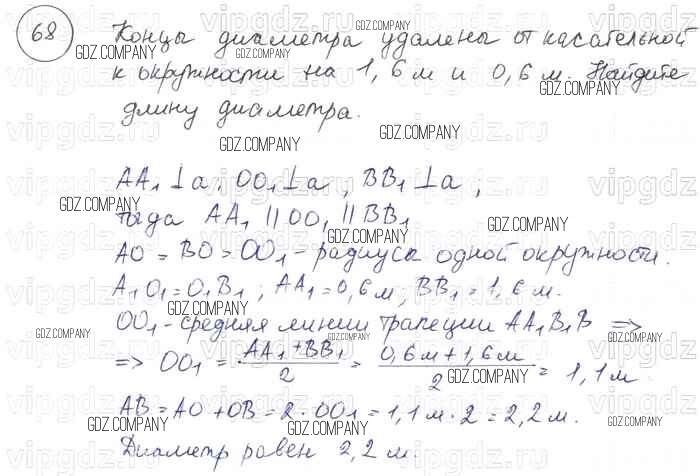 68 Концы диаметра удалены от касательной
к окружности на 1,6 м и 0,6 м. Найдите
длину диаметра.
AA₁ ⊥ a, OO₁ ⊥ a, BB₁ ⊥ a,
тогда AA₁ || OO₁ || BB₁
AO = BO = OO₁ - радиусы одной окружности.
A₁O₁ = O₁B₁; AA₁ = 0,6 м; BB₁ = 1,6 м.
OO₁ - средняя линии трапеции AA₁B₁B =>
=> OO₁ = (AA₁ + BB₁)/2 = (0,6 м + 1,6 м)/2 = 1,1 м.
AB = AO + OB = 2 · OO₁ = 1,1 м · 2 = 2,2 м.
Диаметр равен 2,2 м.